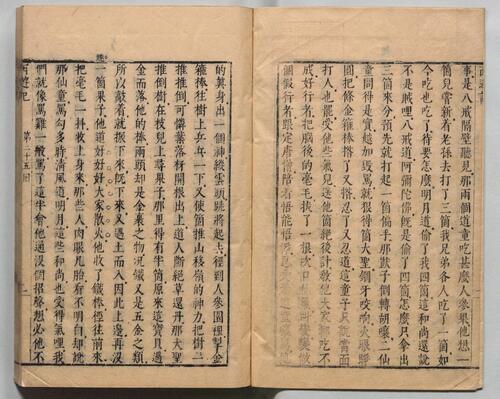 事是八戒隔壁聽見那兩個道童吃甚麼人參果他想一
箇兒嘗新有老孫去打了三箇我兄弟各人吃了一箇如
今吃也吃了待要怎麼明月道偷了我四箇這和尚還說
不是賊哩八戒道阿彌陀佛旣是偷了四箇怎麼只拿出
三箇來分預先就打起一箇偷手那獃子倒轉胡嚷二仙
童問得是實越加毀罵就恨得箇大聖鋼牙咬响火眼睜
圓把條金箍棒揝了又揝忍了又忍道這童子只說當面
打人也罷受他些氣兒送他箇絕後計教他大家都吃不
成好行者把腦後的毫毛拔了一根吹口仙氣叫變變做
個假行者跟定唐僧陪着悟能悟淨忍受着道童嚷罵他
的眞身出一個神縱雲頭跳將起去徑到人參園裡掣金
箍棒往樹上乒乓一下又使箇推山移嶺的神力把樹一
推推倒可憐葉落椏開根出土道人斷絕草還丹那大聖
推倒樹却在枝兒上尋果子那里得有半箇原來這寶貝遇
金而落他的棒兩頭却是金裹之物况鐵又是五金之類
所以敲着就振下來旣下來又遇土而入因此上邊再沒
一箇果子他道好好好大家散火他收了鐵棒徑往前來
把毫毛一抖收上身來那些人肉眼凡胎看不明白却說
那仙童罵勾多時淸風道明月這些和尚也受得氣哩我
們就像罵雞一般罵了這半會他通沒個招聲想必他不
西遊記 第二十五回